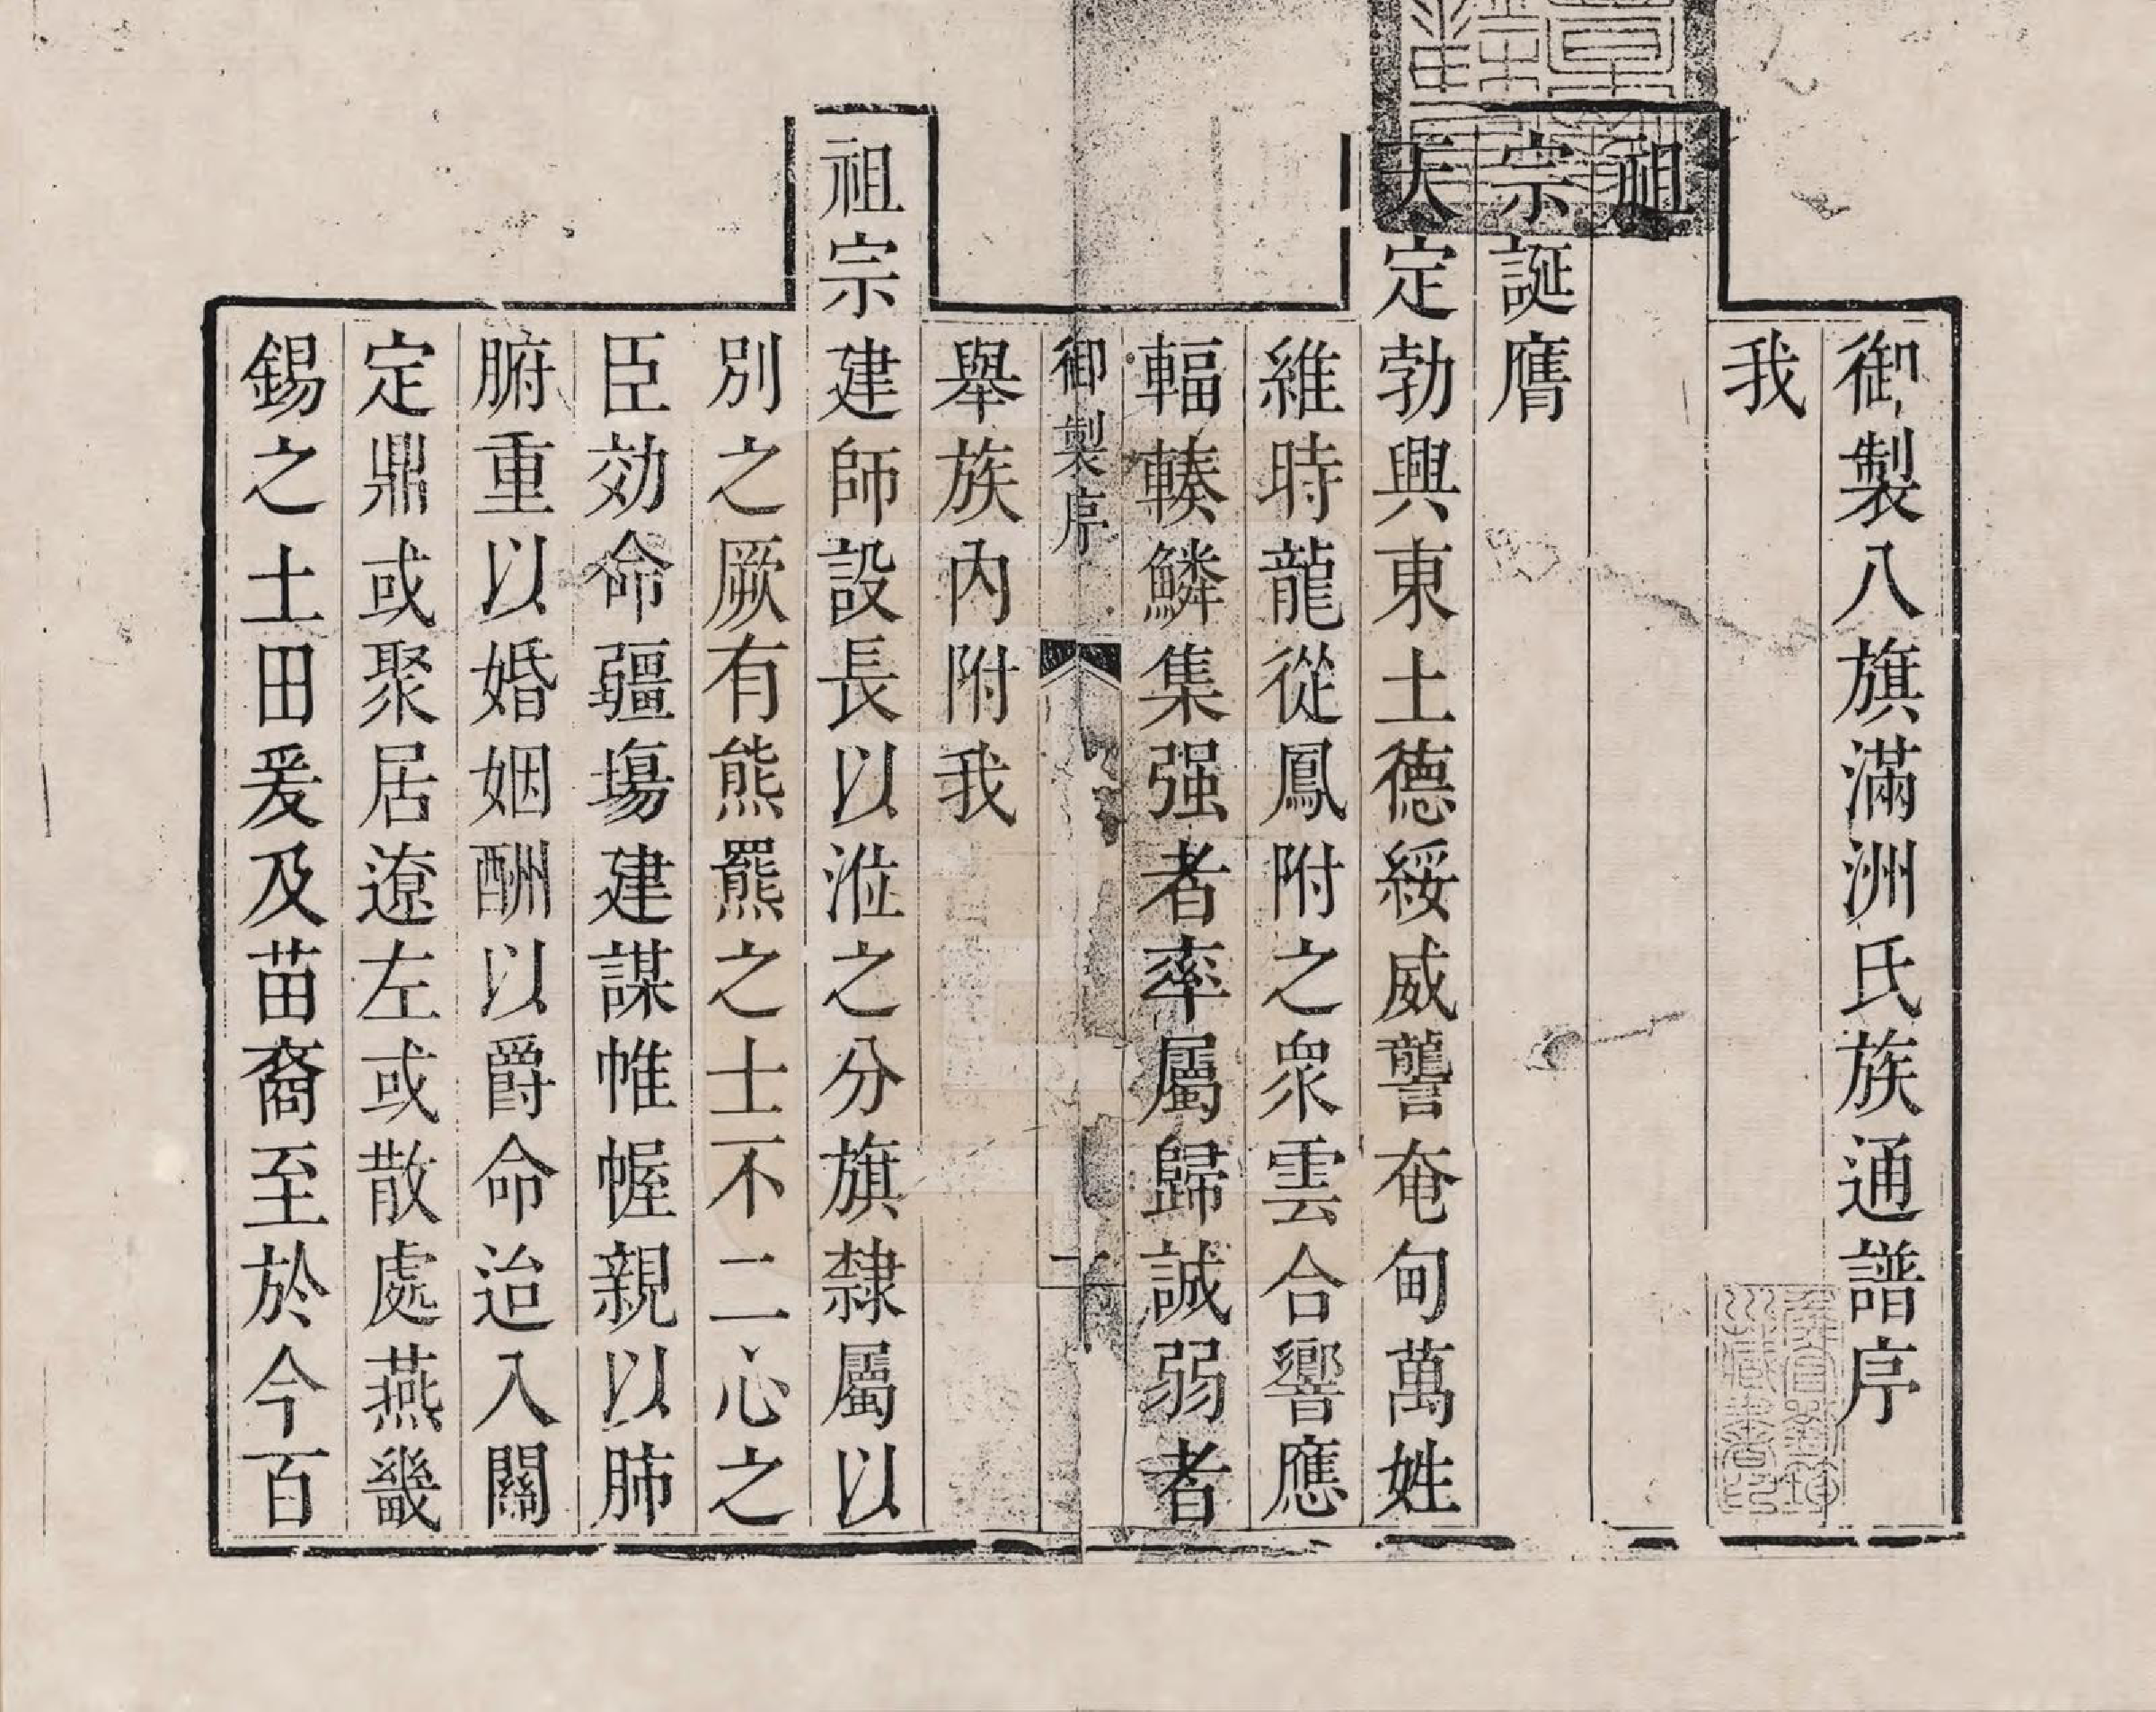 御製八旗滿洲氏族通譜序
我
祖
宗誕膺
天定勃興東土德綏威讋奄甸萬姓
維時龍從鳳附之眾雲合響應
輻輳鱗集强者率屬歸誠弱者
御製序
一
舉族内附我
祖宗建師設長以涖之分旗隸屬以
別之厥有熊羆之士不二心之
臣効命疆場建謀帷幄親以肺
腑重以婚姻酬以爵命迨入關
定鼎或聚居遼左或散處燕畿
錫之土田爰及苗裔至於今百